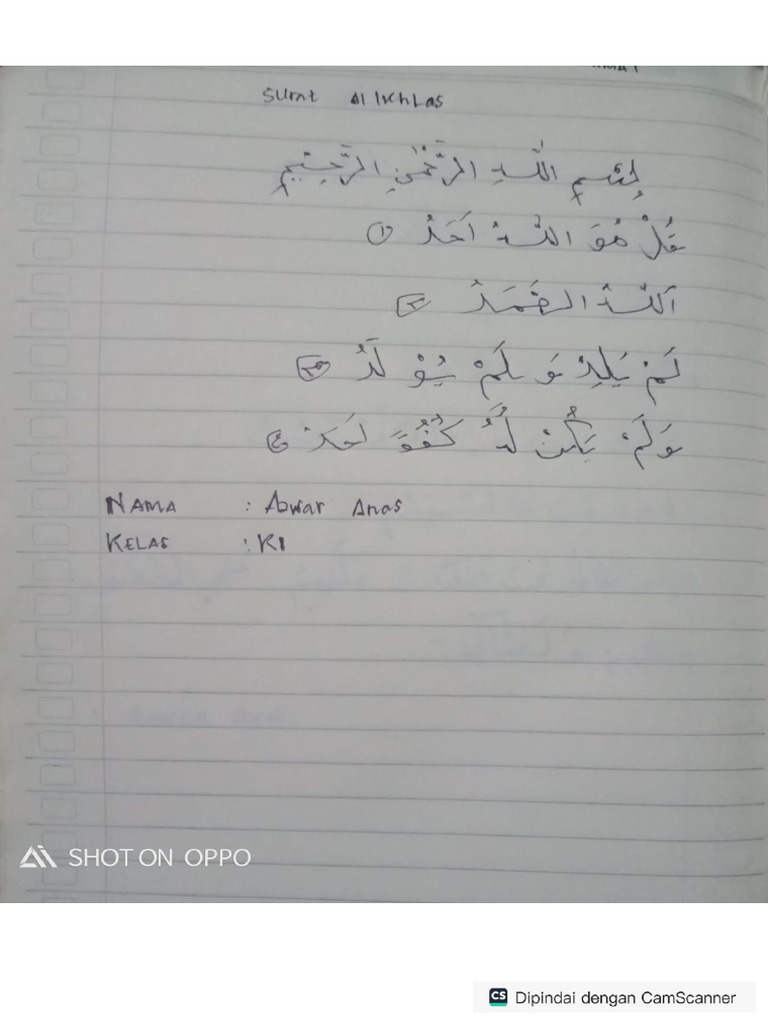 Surat Al Ikhlas
بِسْمِ اللّٰهِ الرَّحْمٰنِ الرَّحِيْمِ
قُلْ هُوَ اللّٰهُ اَحَدٌ ١
اَللّٰهُ الصَّمَدُ ٢
لَمْ يَلِدْ وَ لَمْ يُوْ لَدْ ٣
وَلَمْ يَكُنْ لَهُ كُفُوًا اَحَدٌ ٤
NAMA : Aswar Anas
KELAS : K1
SHOT ON OPPO
CS Dipindai dengan CamScanner